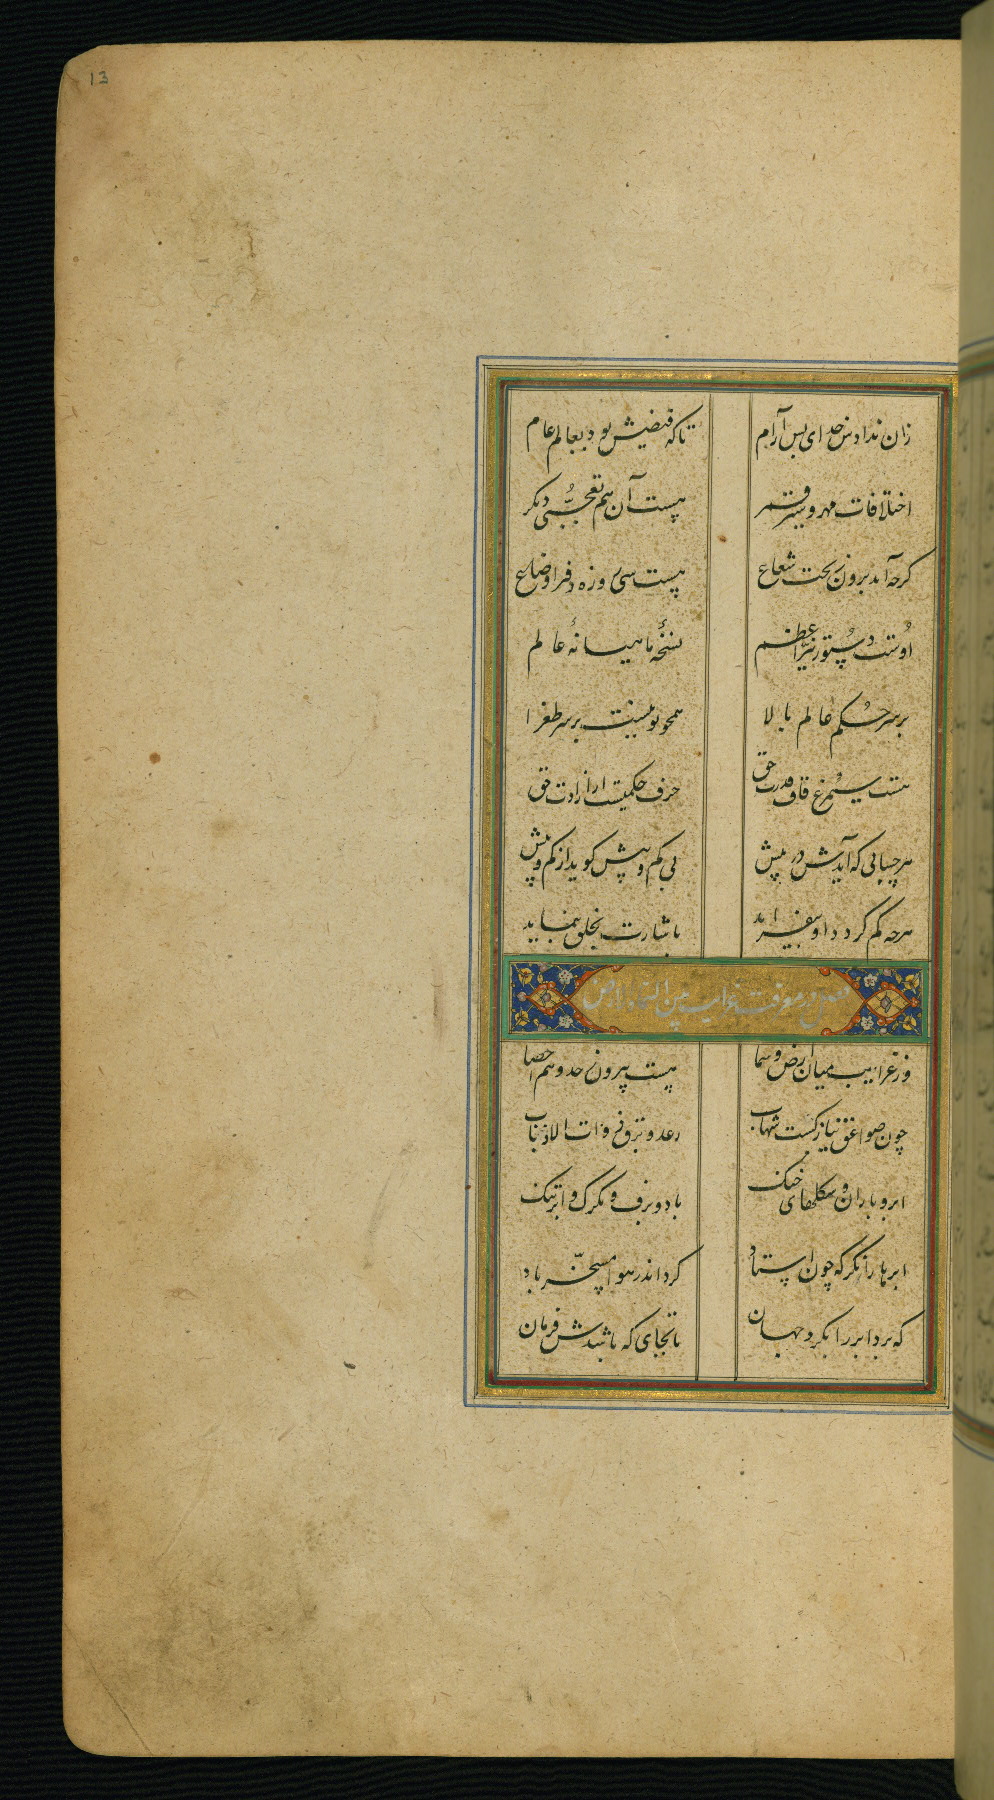 13
زان ندادش خدای بس آرام تاکه فیضش بود بعالم عام
اختلافات مهر و سیر قمر هست آن هم تعجبی دیکر
کرچه آمد برون ز تحت شعاع هست سی روزه در اوضاع
اوست دستور نیر اعظم نسخه ماهیانه عالم
بر سر حکم عالم بالا همچو تو بر سر طغرا
هست سیمرغ قاف قدرت حق حرف حکمیست از ارادت حق
هر حسابی که آیدش در پیش بی کم و بیش کوید از کم و بیش
هرچه کم کردد او بیفزاید باشارت بخلق بنماید
فصل در معرفت غرایب بین السماء و الارض
وز غرایب میان ارض و سما هست بیرون ز حد وهم احصا
چون صواعق نیازک شهاب رعد و برق و ذوات الاذناب
ابر و باران و شکلهای خنک باد و برف و تکرک و
ابر بارا نکر که چون استاد کرد اندر هوا مسخر باد
که برد ابر را بکرد جهان تا بجای که باشدش فرمان